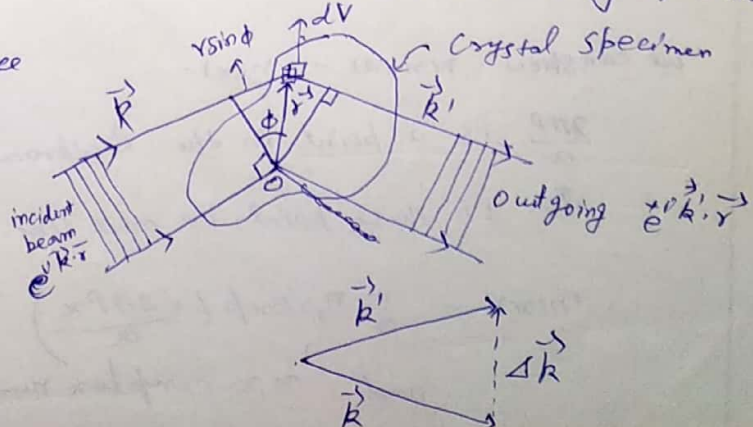 ee
dV
r sinφ
Crystal Specimen
k⃗
φ
r⃗
k⃗'
O
incident
beam
e^{ik⃗·r⃗}
Outgoing e^{ik⃗'·r⃗}
k⃗'
Δk⃗
k⃗